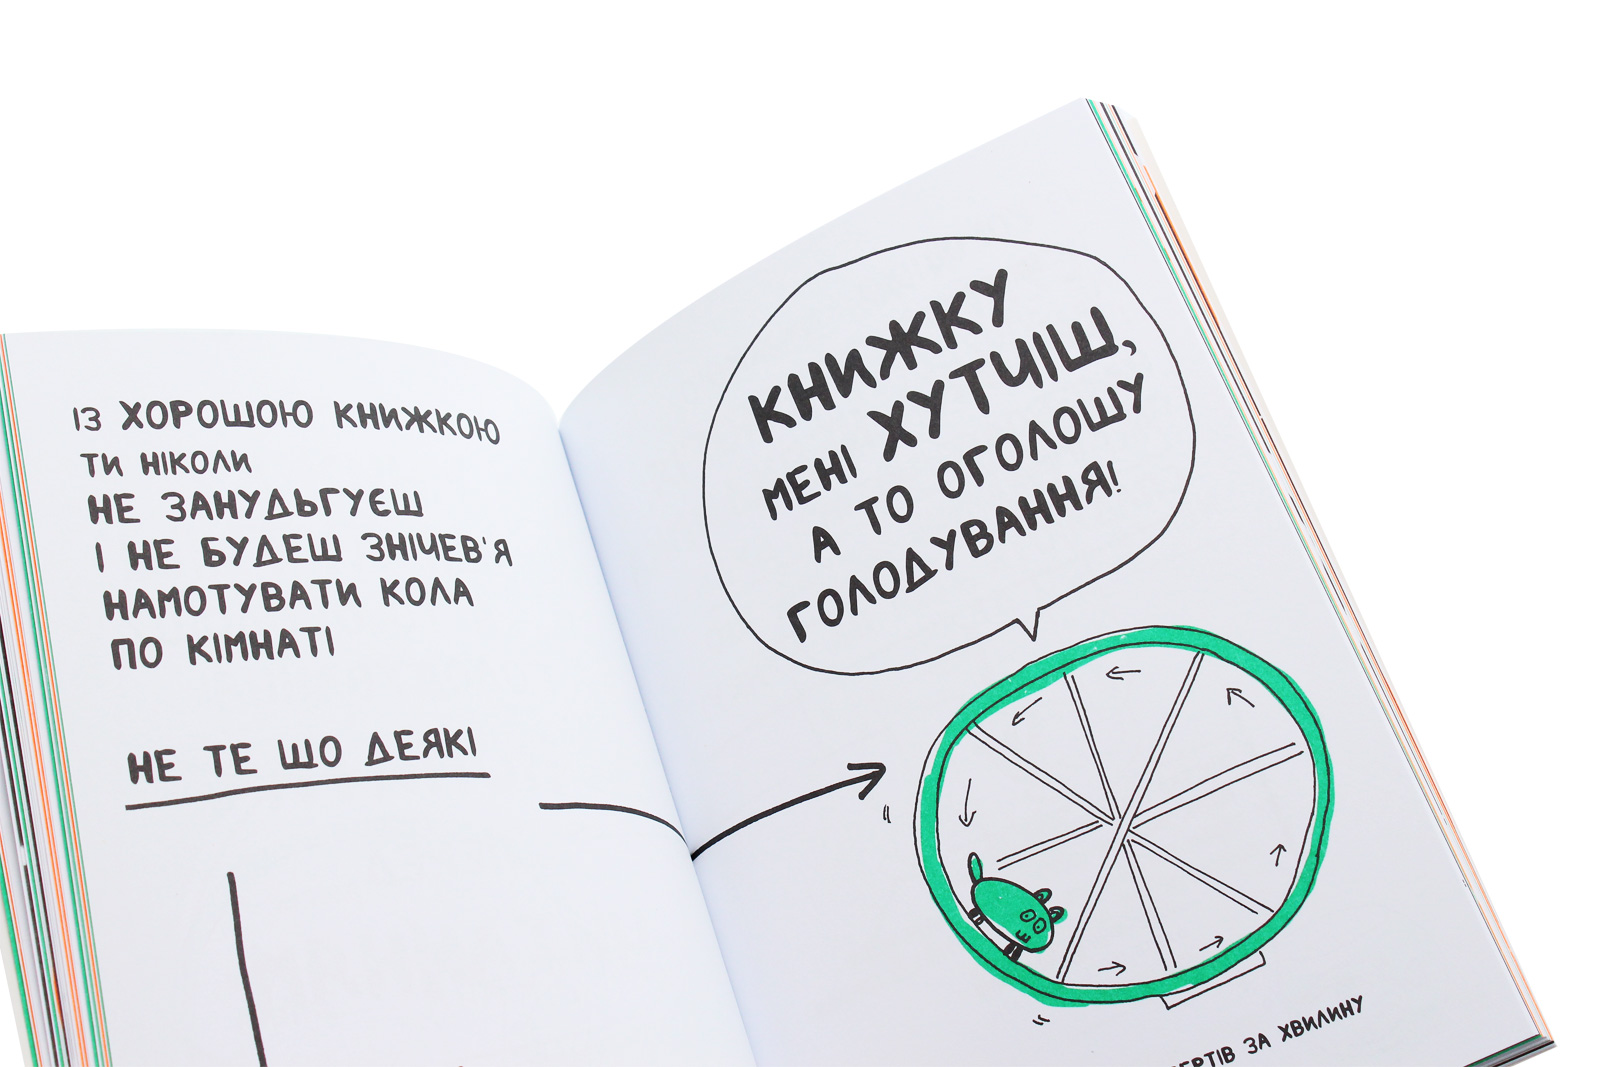 ІЗ ХОРОШОЮ КНИЖКОЮ
ТИ НІКОЛИ
НЕ ЗАНУДЬГУЄШ
І НЕ БУДЕШ ЗНІЧЕВ'Я
НАМОТУВАТИ КОЛА
ПО КІМНАТІ
НЕ ТЕ ЩО ДЕЯКІ
КНИЖКУ
МЕНІ ХУТЧІШ,
А ТО ОГОЛОШУ
ГОЛОДУВАННЯ!
ЗА ХВИЛИНУ